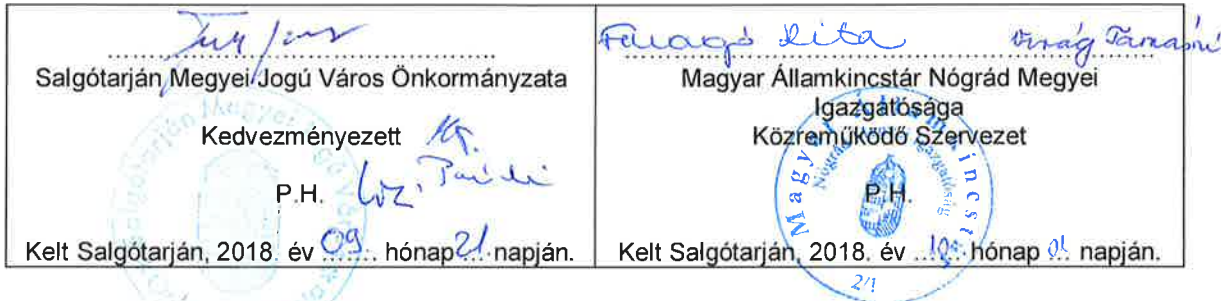 Salgótarján Megyei Jogú Város Önkormányzata
Kedvezményezett
P.H.
Kelt Salgótarján, 2018. év 09 hónap 21 napján.
Faragó Rita Virág Tamásné
Magyar Államkincstár Nógrád Megyei
Igazgatósága
Közreműködő Szervezet
P.H.
Kelt Salgótarján, 2018. év 10. hónap 01 napján.
Magyar Államkincstár
Nógrád Megyei Igazgatóság
2/1